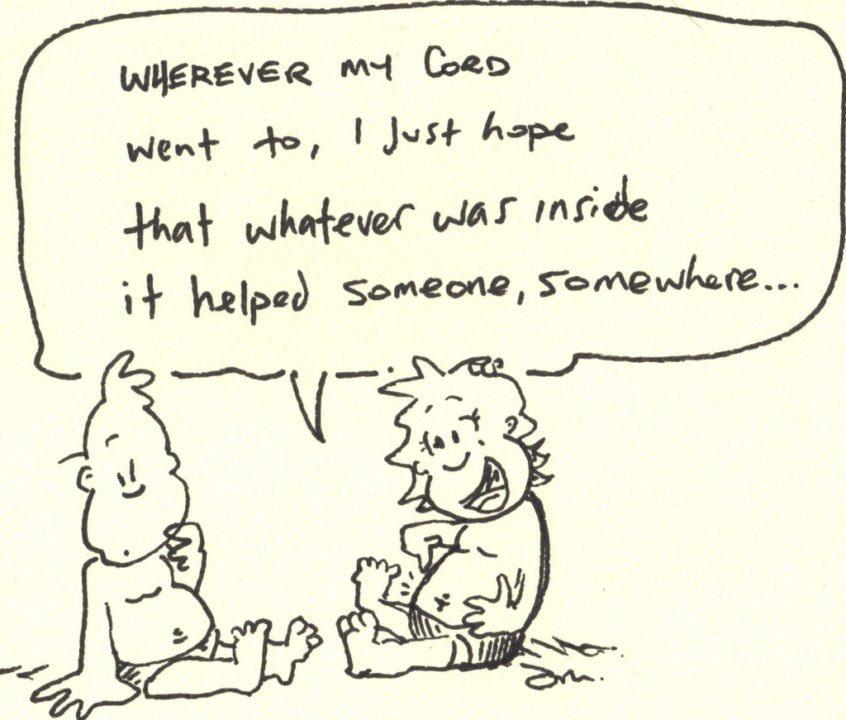 WHEREVER MY CORD
went to, I Just hope
that whatever was inside
it helped someone, somewhere...